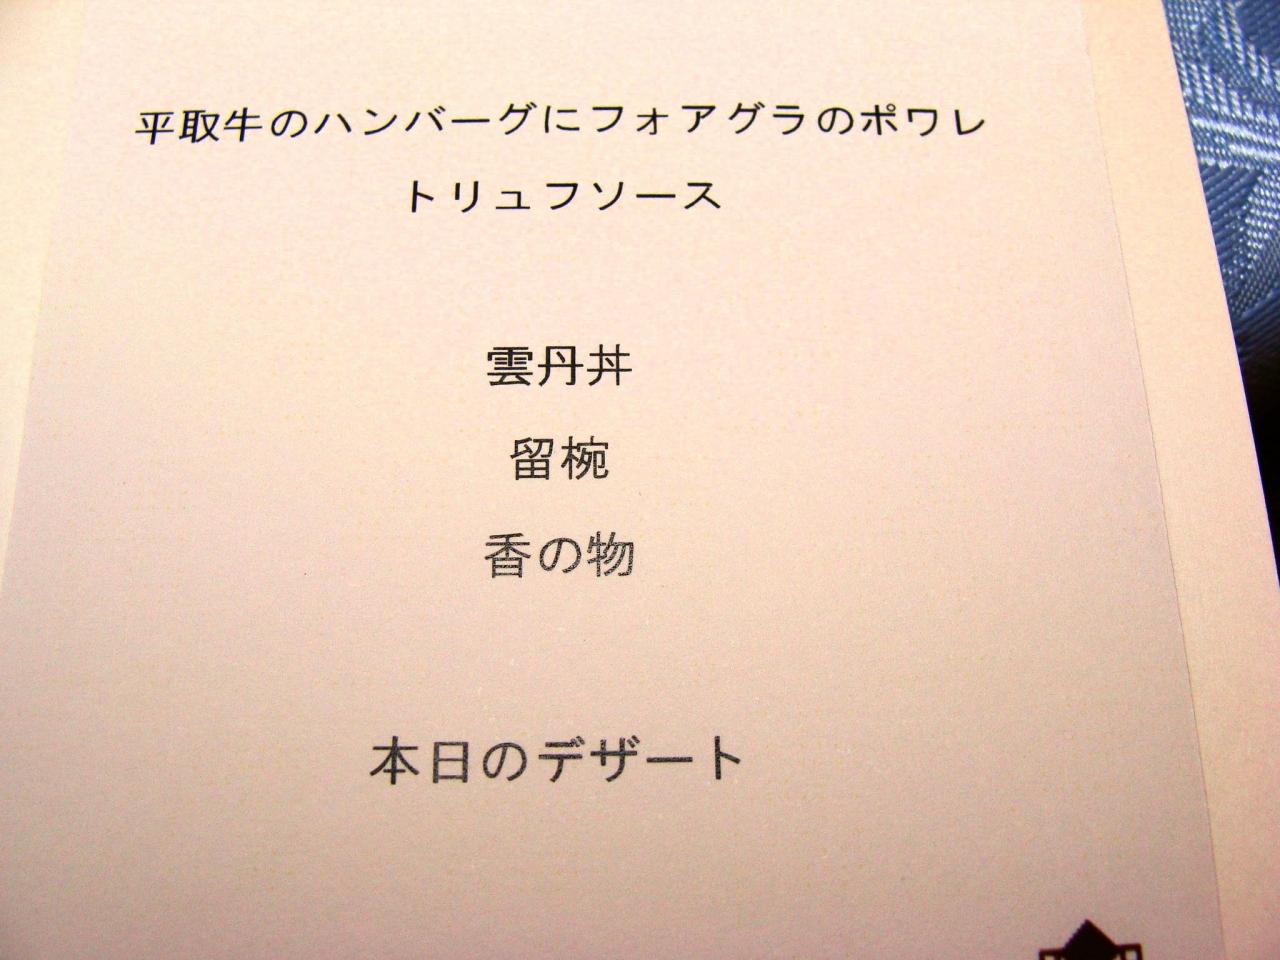 平取牛のハンバーグにフォアグラのポワレ
トリュフソース
雲丹丼
留椀
香の物
本日のデザート